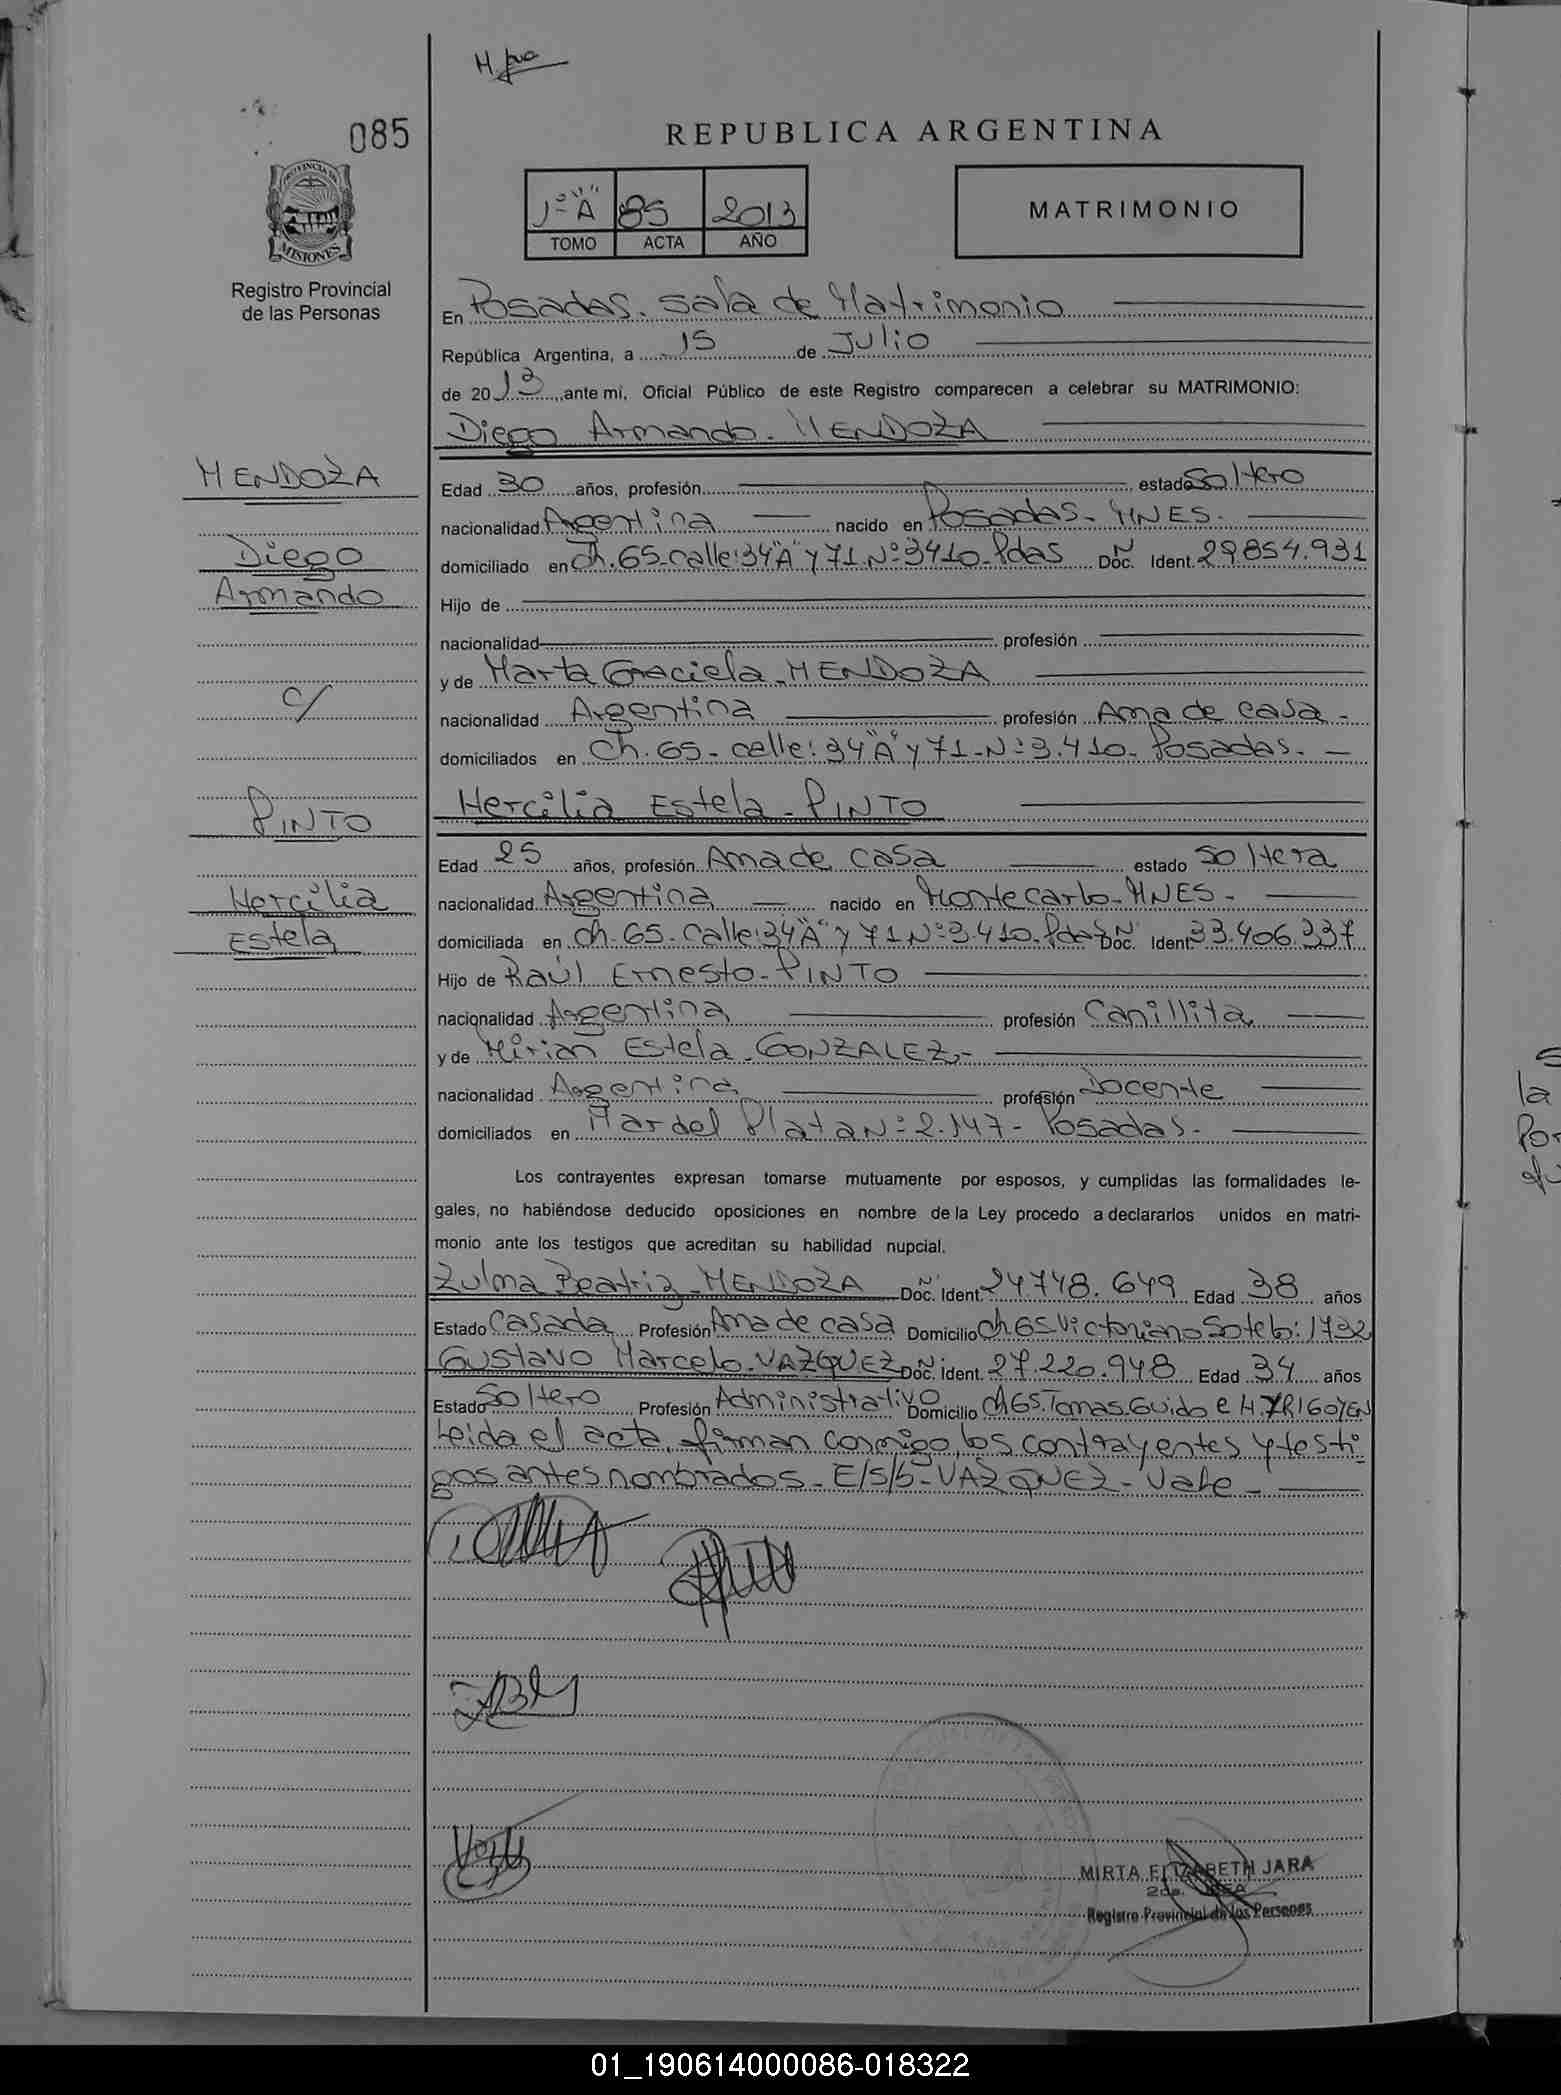 085
REPUBLICA ARGENTINA
1º "A" 85 2013
TOMO ACTA AÑO
MATRIMONIO
PROVINCIA DE
MISIONES
Registro Provincial
de las Personas
En Posadas. Sala de Matrimonio
República Argentina, a 15 de Julio
de 2013, ante mi, Oficial Público de este Registro comparecen a celebrar su MATRIMONIO:
Diego Armando. MENDOZA
MENDOZA
Diego
Armando
c/
PINTO
Hercilia
Estela
Edad 30 años, profesión estado Soltero
nacionalidad Argentina nacido en Posadas- MNES.
domiciliado en Ch. 65- calle: 34 "A" y 71. Nº 3410. Pdas Doc. Ident. 29.854.931
Hijo de
nacionalidad profesión
y de Marta Graciela. MENDOZA
nacionalidad Argentina profesión Ama de casa -
domiciliados en Ch. 65- calle: 34 "A" y 71- Nº 3.410- Posadas. -
Hercilia Estela- PINTO
Edad 25 años, profesión Ama de casa estado Soltera
nacionalidad Argentina nacido en Montecarlo- MNES-
domiciliada en Ch- 65- Calle: 34 "A" y 71 Nº 3.410. Pdas Doc. Ident. 33.406.337
Hijo de Raúl Ernesto- PINTO
nacionalidad Argentina profesión Canillita
y de Mirian Estela- GONZALEZ.-
nacionalidad Argentina profesión Docente
domiciliados en Mar del Plata Nº 2.147- Posadas-
Los contrayentes expresan tomarse mutuamente por esposos, y cumplidas las formalidades le-
gales, no habiéndose deducido oposiciones en nombre de la Ley procedo a declararlos unidos en matri-
monio ante los testigos que acreditan su habilidad nupcial.
Zulma Beatriz- MENDOZA Doc. Ident. 24.748.649 Edad 38 años
Estado Casada Profesión Ama de casa Domicilio Ch 65 Victoriano Sotelo: 1732
Gustavo Marcelo- VAZQUEZ Doc. Ident. 27.220.948 Edad 34 años
Estado Soltero Profesión Administrativo Domicilio Ch 65. Tomas Guido e H. YRIGOYEN
Leida el acta, firman conmigo los contrayentes y testi-
gos antes nombrados- E/S/b- VAZQUEZ- Vale-
MIRTA ELIZABETH JARA
Registro Provincial de las Personas
01_190614000086-018322